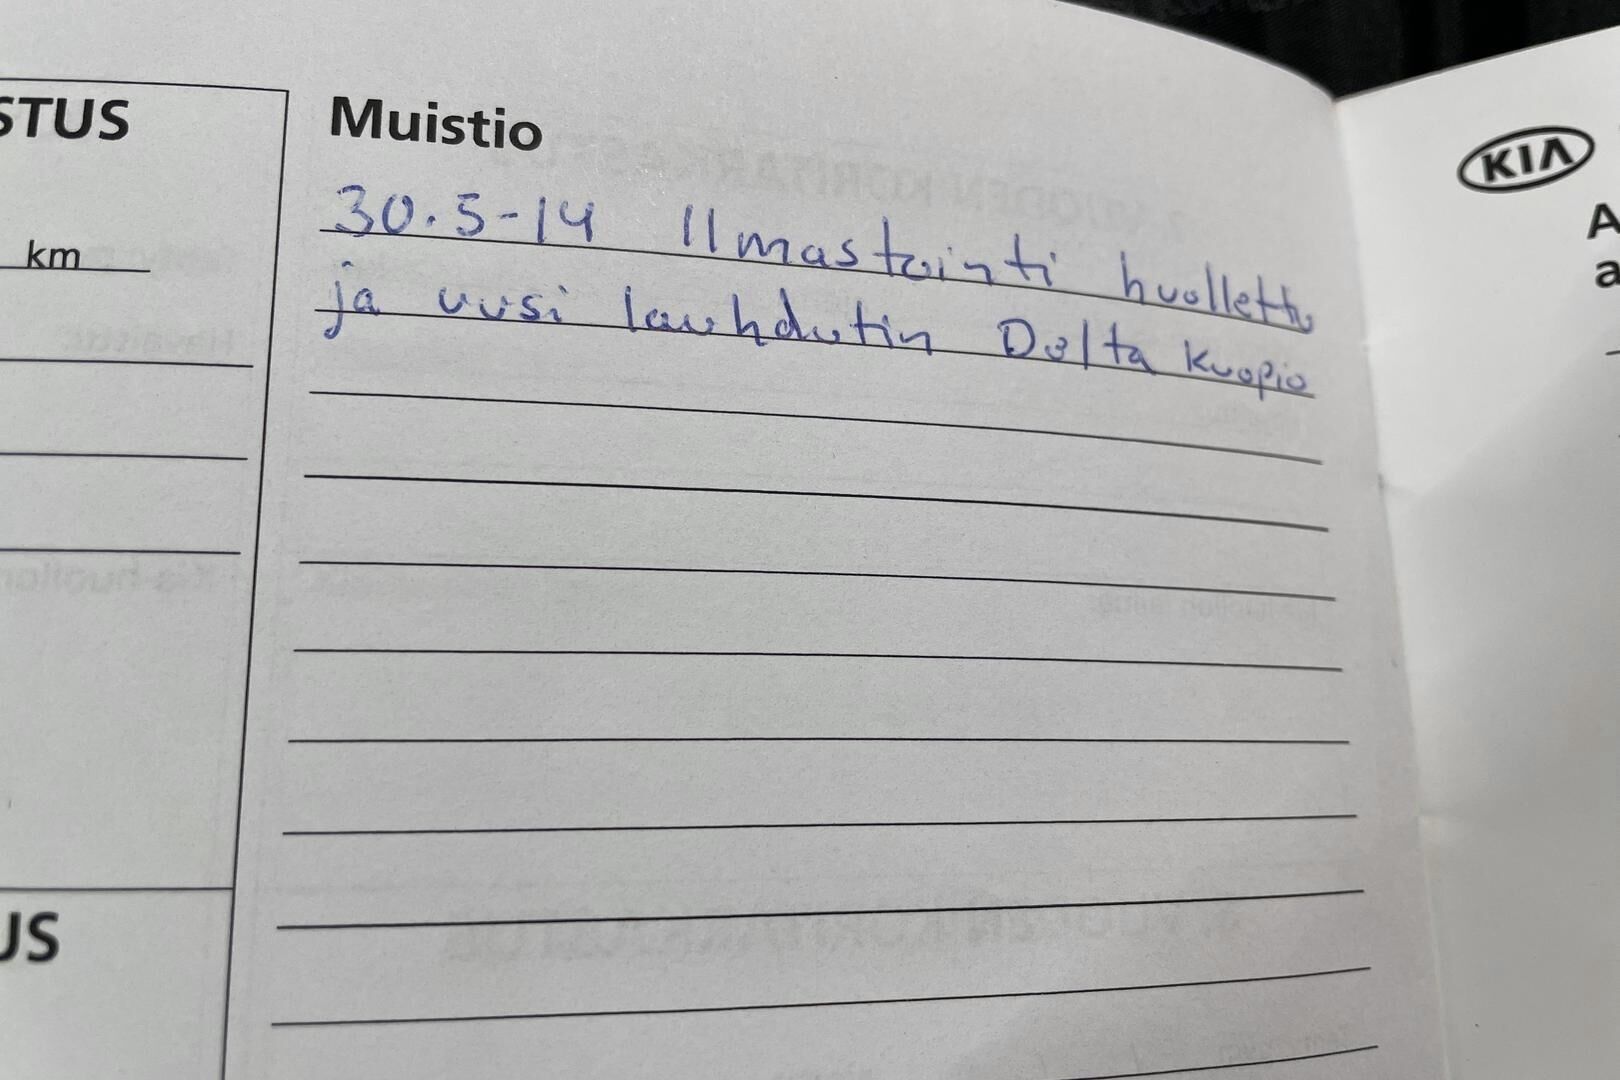 STUS
km
US
Muistio
30.5-14 Ilmastointi huollettu
ja uusi lauhdutin Delta Kuopio
KIA
A
a